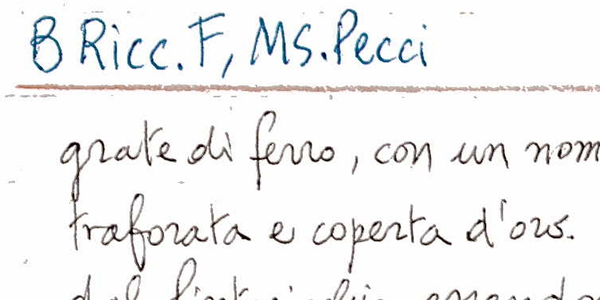 B Ricc. F, MS. Pecci
grate di ferro, con un nom
traforata e coperta d'oro.